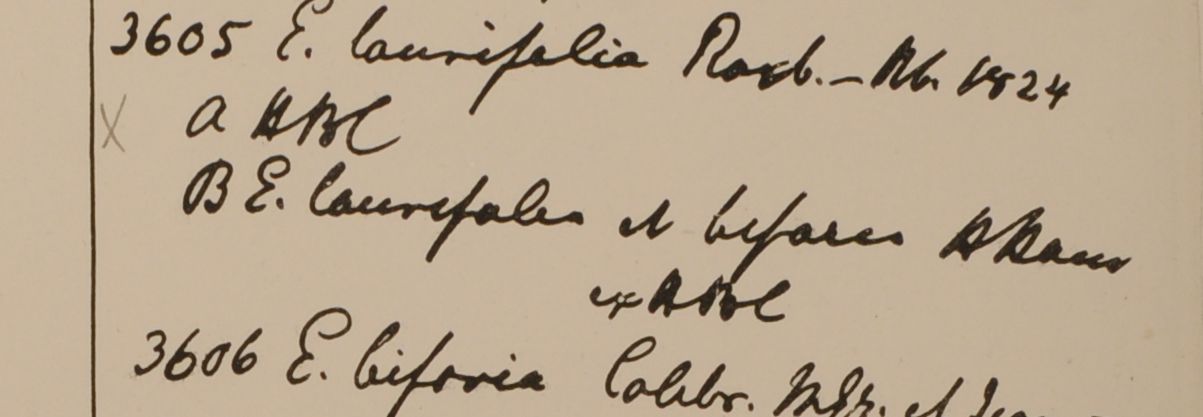 3605 E. laurifolia Roxb. – Hb. 1824
X a HBC
B E. laurifolia et bifaria HHam
ex HBC
3606 E. bifaria Colebr. Mss. et